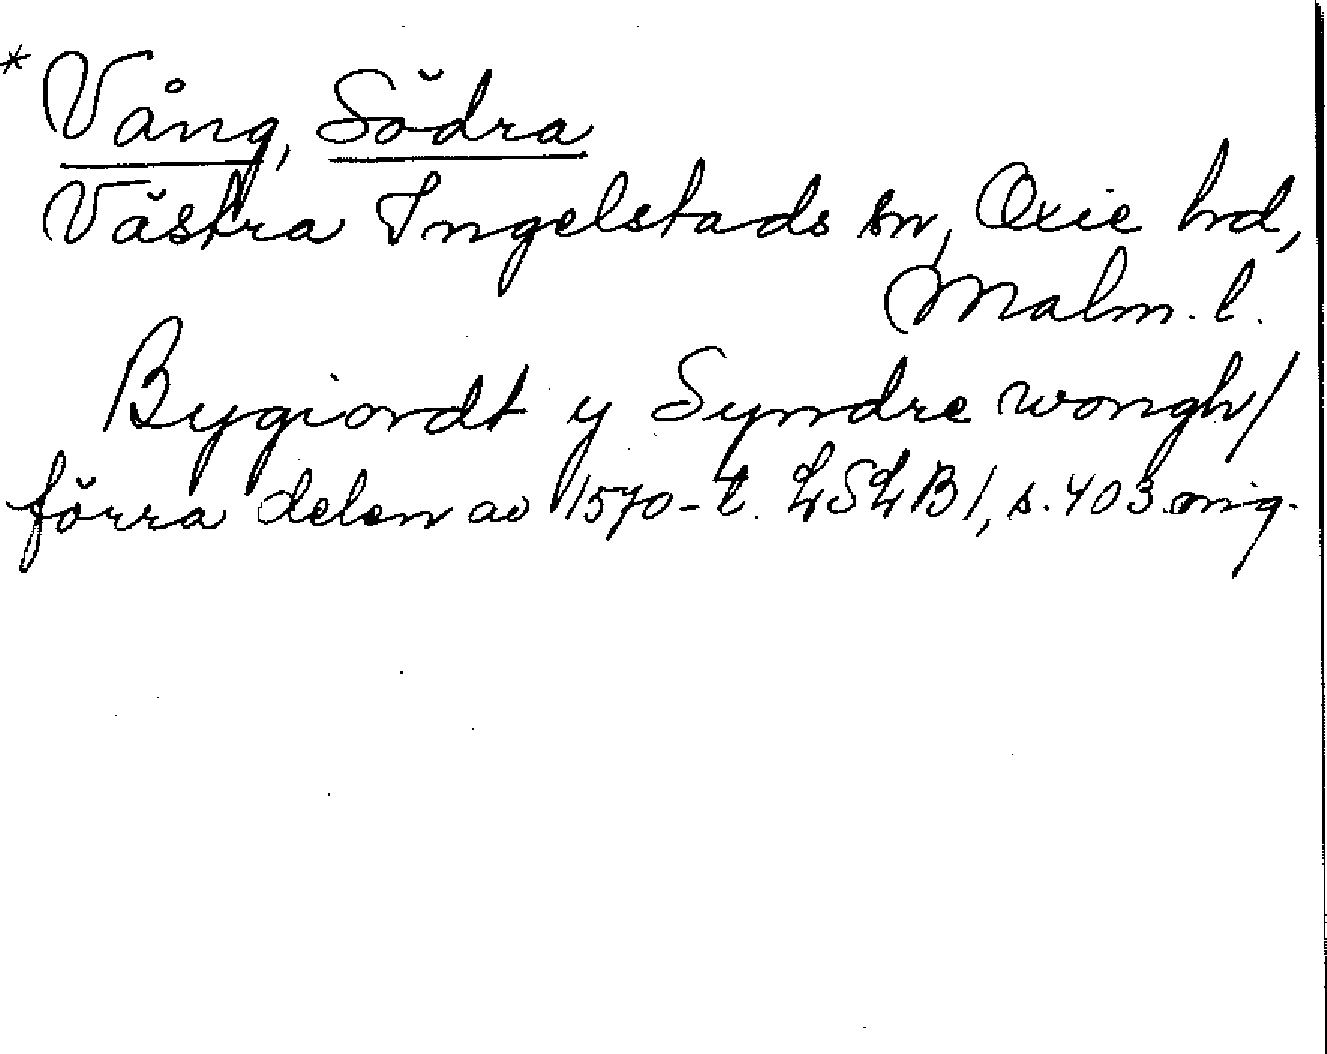 * Vång, Södra
Västra Ingelstads sn, Oxie hd,
Malm. l.
Bygiordt y Syndre wongh/
förra delen av 1570-t. LSLB 1, s. 403 mg.